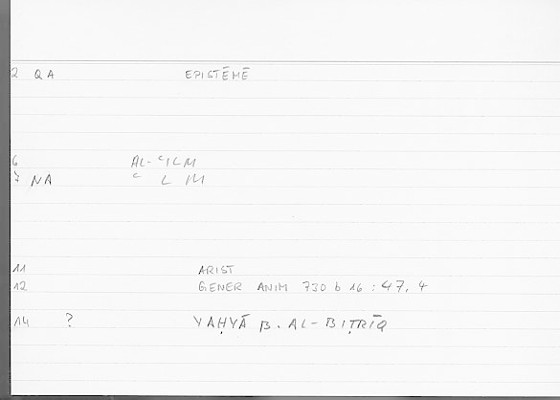 2 QA EPISTĒMĒ
6 AL-ʿILM
7 NA ʿ L M
11 ARIST
12 GENER ANIM 730 b 16 : 47, 4
14 ? YAḤYĀ B. AL-BIṬRĪQ